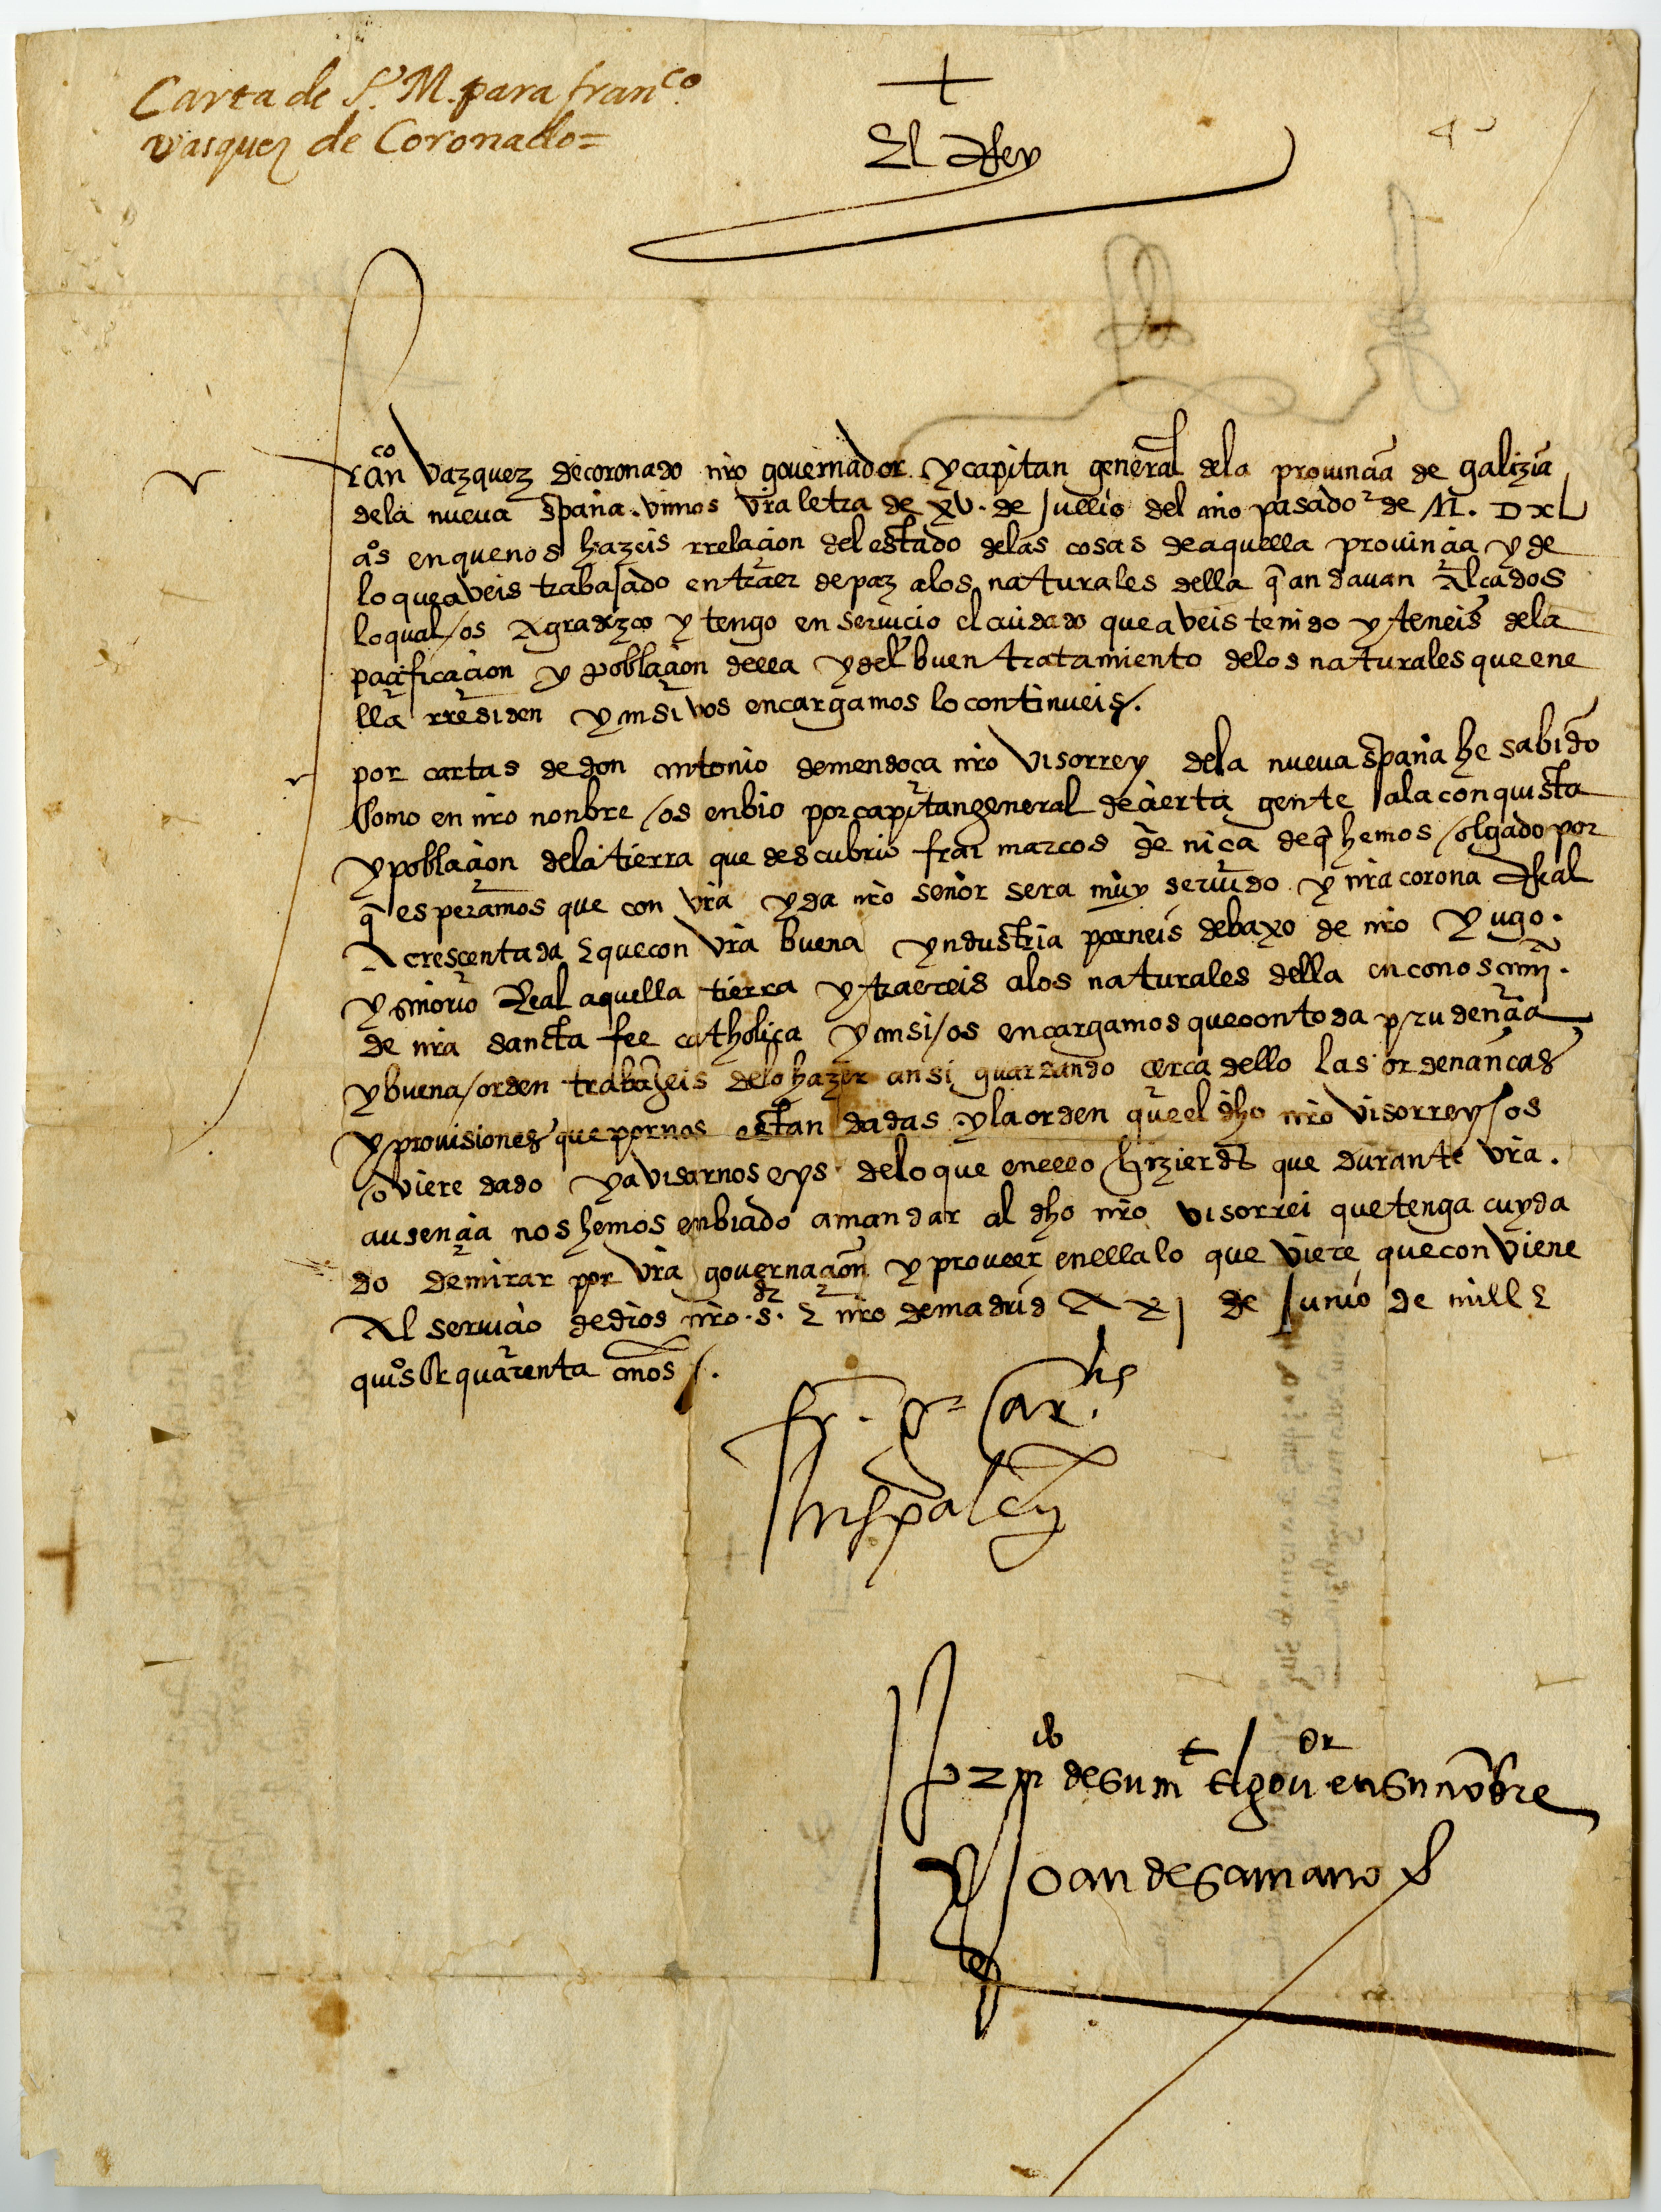 Carta de S. M. para fran.co
Vasquez de Coronado=
+
El Rey
franco Vazquez de coronado nro governador y capitan general dela provincia de galizia
dela nueva spaña. vimos vra letra de xv. de Jullio del año pasado de M. D XL
aºs en que nos hazeis rrelacion del estado delas cosas de aquella provincia y de
lo que aveis trabajado en traer de paz alos naturales della q̄ andavan Alcados
lo qual / os Agradezco y tengo en servicio el cuidado que aveis tenido y teneis dela
pacificacion y poblacion della y del buen tratamiento delos naturales que ene
lla rresiden y ansi vos encargamos lo continueis /.
por cartas de don antonio de mendoca nro Visorrey dela nueva spaña he sabido
Como en nro nonbre / os enbio por capitan general de cierta gente / ala conquista
y poblacion dela tierra que descubrio frai marcos de nica de q̄ hemos / olgado por
q̄ esperamos que con vra yda nro señor sera muy servido y nra corona Real
Acrescentada & que con vra buena yndustria porneis debaxo de nro yugo.
y señorio Real aquella tierra y traereis alos naturales della en conoscimi.º
de nra sancta fee catholica y ansi / os encargamos que con toda prudencia
y buena / orden trabajeis delo hazer ansi guardando cerca dello las ordenancas
y provisiones que por nos estan dadas y la orden que el dho nro Visorrey / os
oviere dado y avisarnos eys delo que enello hizierdes que durante vra.
ausencia nos hemos enbiado a mandar al dho nro visorrei que tenga cuyda
do de mirar por vra governacion y proveer enella lo que viere que conviene
Al servicio de dios nro .s. & nro de madrid A xxj de Junio de mill &
quiºs & quarenta años /.
fr. G. Car.lis
hispalen
Por mdo de su mt El gov.or en su nōbre
Joan de Samano